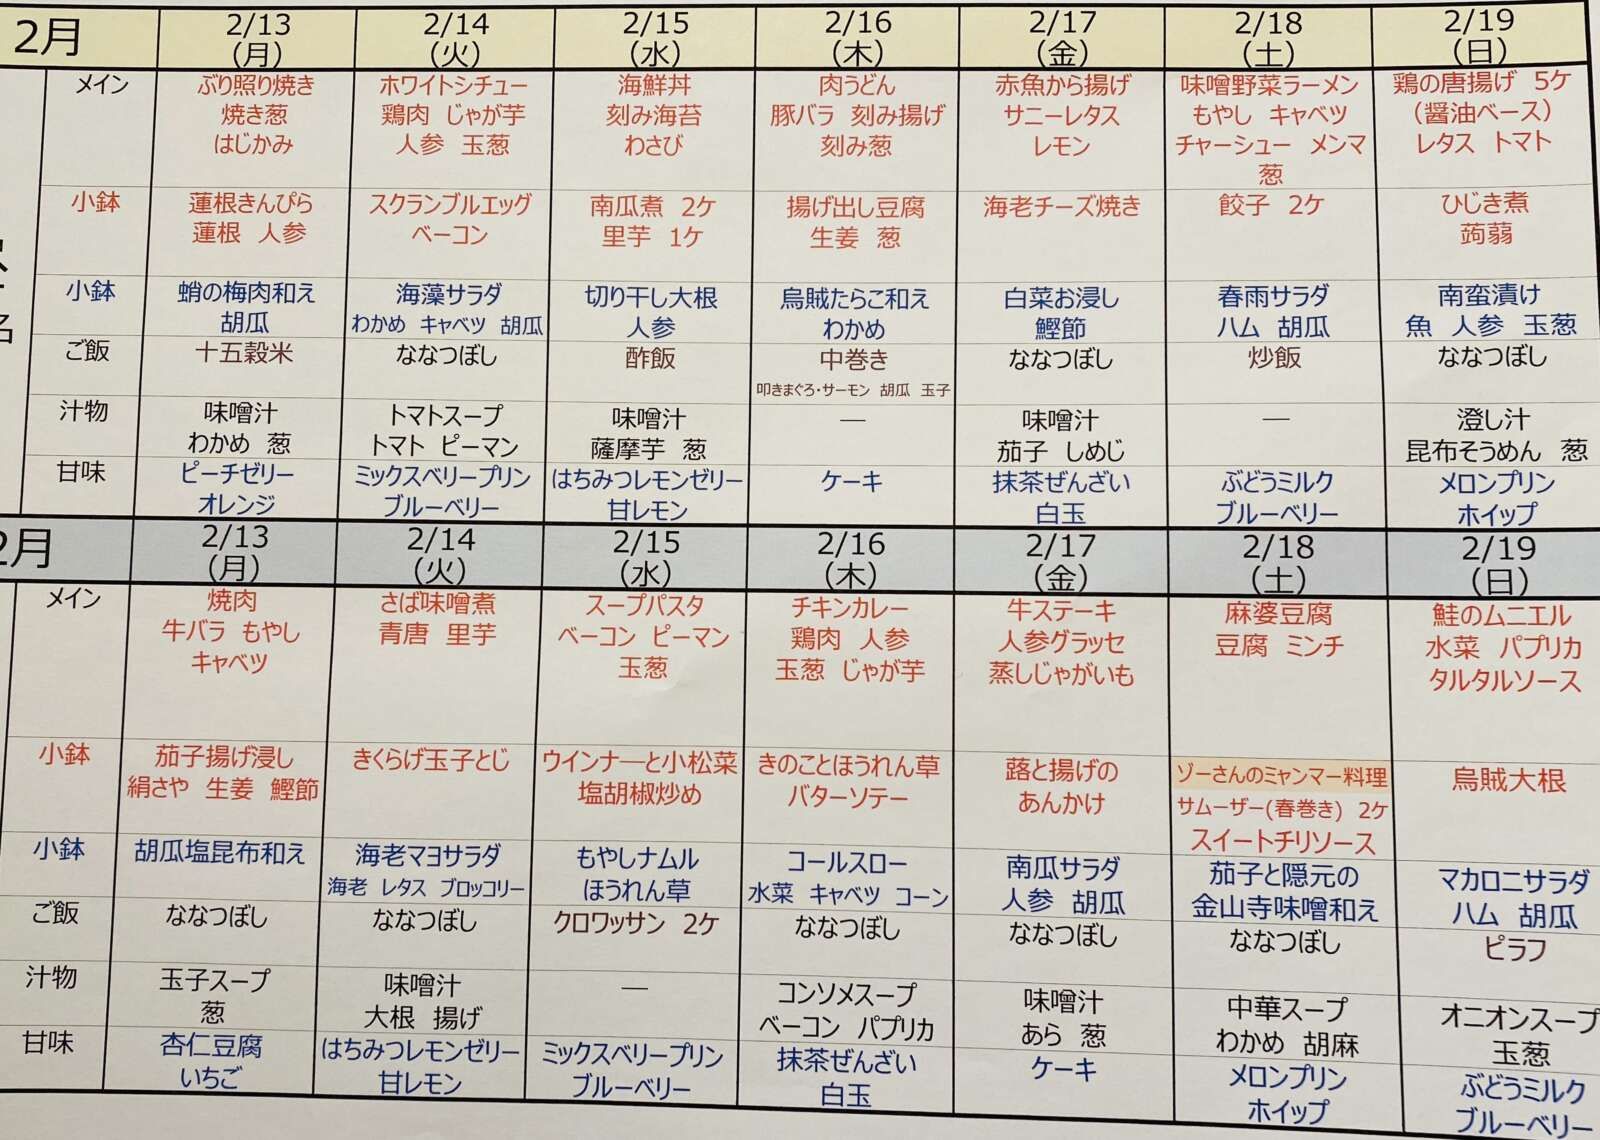 2月 2/13 2/14 2/15 2/16 2/17 2/18 2/19
(月) (火) (水) (木) (金) (土) (日)
メイン ぶり照り焼き ホワイトシチュー 海鮮丼 肉うどん 赤魚から揚げ 味噌野菜ラーメン 鶏の唐揚げ 5ケ
焼き葱 鶏肉 じゃが芋 刻み海苔 豚バラ 刻み揚げ サニーレタス もやし キャベツ (醤油ベース)
はじかみ 人参 玉葱 わさび 刻み葱 レモン チャーシュー メンマ レタス トマト
葱
小鉢 蓮根きんぴら スクランブルエッグ 南瓜煮 2ケ 揚げ出し豆腐 海老チーズ焼き 餃子 2ケ ひじき煮
蓮根 人参 ベーコン 里芋 1ケ 生姜 葱 蒟蒻
小鉢 蛸の梅肉和え 海藻サラダ 切り干し大根 烏賊たらこ和え 白菜お浸し 春雨サラダ 南蛮漬け
胡瓜 わかめ キャベツ 胡瓜 人参 わかめ 鰹節 ハム 胡瓜 魚 人参 玉葱
ご飯 十五穀米 ななつぼし 酢飯 中巻き ななつぼし 炒飯 ななつぼし
叩きまぐろ・サーモン 胡瓜 玉子
汁物 味噌汁 トマトスープ 味噌汁 — 味噌汁 — 澄し汁
わかめ 葱 トマト ピーマン 薩摩芋 葱 茄子 しめじ 昆布そうめん 葱
甘味 ピーチゼリー ミックスベリープリン はちみつレモンゼリー ケーキ 抹茶ぜんざい ぶどうミルク メロンプリン
オレンジ ブルーベリー 甘レモン 白玉 ブルーベリー ホイップ
2月 2/13 2/14 2/15 2/16 2/17 2/18 2/19
(月) (火) (水) (木) (金) (土) (日)
メイン 焼肉 さば味噌煮 スープパスタ チキンカレー 牛ステーキ 麻婆豆腐 鮭のムニエル
牛バラ もやし 青唐 里芋 ベーコン ピーマン 鶏肉 人参 人参グラッセ 豆腐 ミンチ 水菜 パプリカ
キャベツ 玉葱 玉葱 じゃが芋 蒸しじゃがいも タルタルソース
小鉢 茄子揚げ浸し きくらげ玉子とじ ウインナーと小松菜 きのことほうれん草 蕗と揚げの ゾーさんのミャンマー料理 烏賊大根
絹さや 生姜 鰹節 塩胡椒炒め バターソテー あんかけ サムーザー(春巻き) 2ケ
スイートチリソース
小鉢 胡瓜塩昆布和え 海老マヨサラダ もやしナムル コールスロー 南瓜サラダ 茄子と隠元の マカロニサラダ
海老 レタス ブロッコリー ほうれん草 水菜 キャベツ コーン 人参 胡瓜 金山寺味噌和え ハム 胡瓜
ご飯 ななつぼし ななつぼし クロワッサン 2ケ ななつぼし ななつぼし ななつぼし ピラフ
汁物 玉子スープ 味噌汁 — コンソメスープ 味噌汁 中華スープ オニオンスープ
葱 大根 揚げ ベーコン パプリカ あら 葱 わかめ 胡麻 玉葱
甘味 杏仁豆腐 はちみつレモンゼリー ミックスベリープリン 抹茶ぜんざい ケーキ メロンプリン ぶどうミルク
いちご 甘レモン ブルーベリー 白玉 ホイップ ブルーベリー